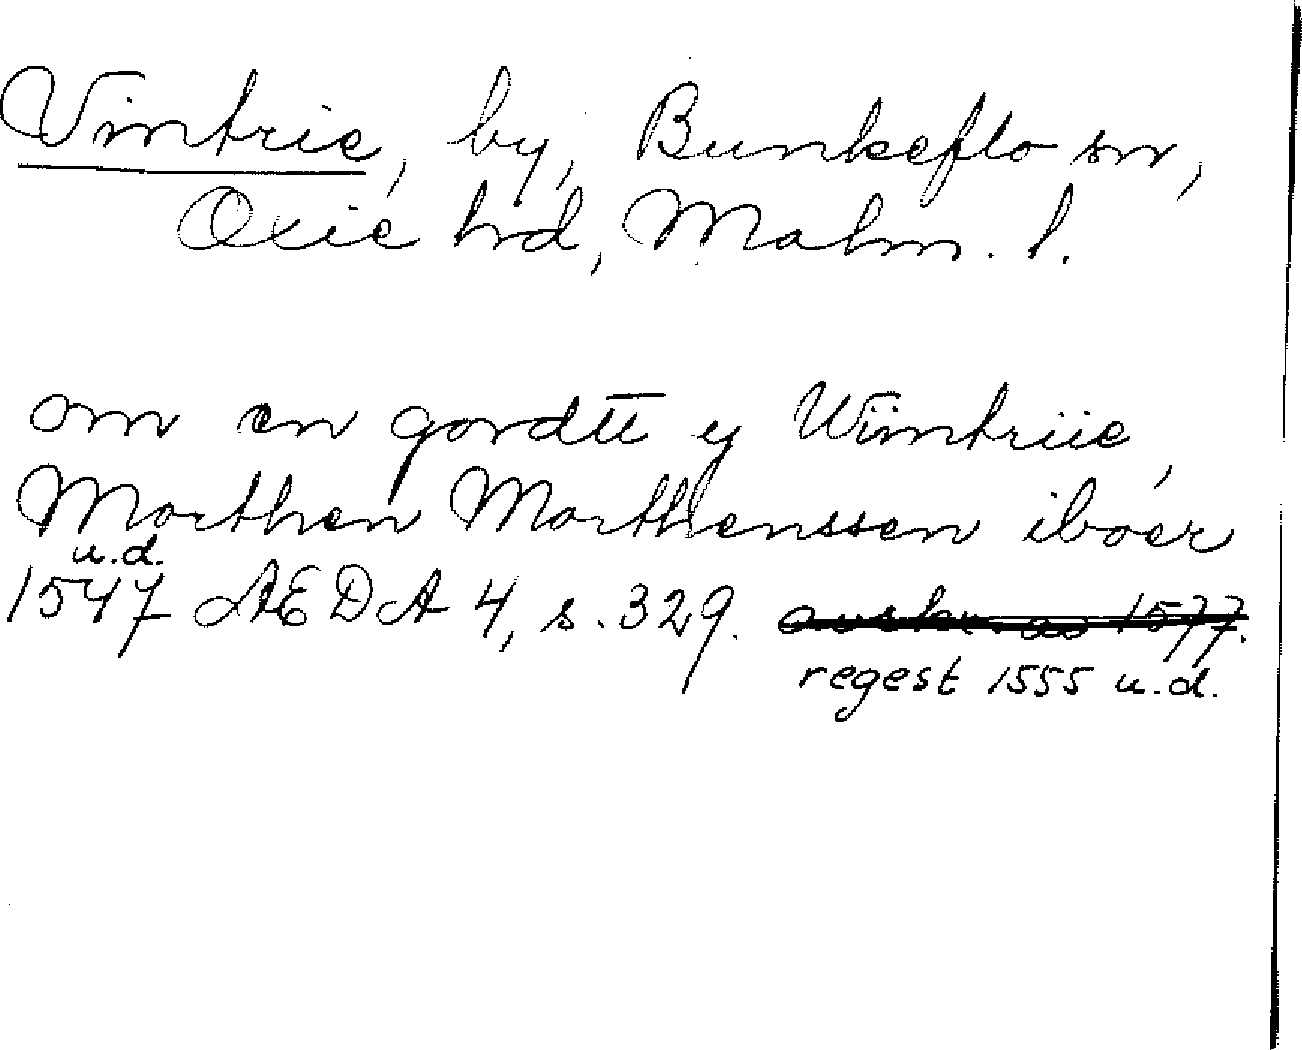 Vintrie, by, Bunkeflo sn,
Oxie hrd, Malm. l.
om en gordtt y Wiintriie,
Morthen Morthenssen iboer
u.d.
1547 ÆDA 4, s. 329. avskr. ao 1577.
regest 1555 u.d.